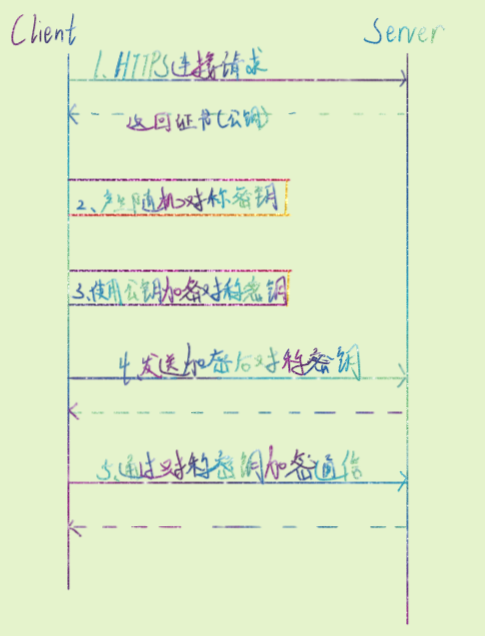 Client
Server
1.HTTPS连接请求
返回证书(公钥)
2、产生随机对称密钥
3.使用公钥加密对称密钥
4.发送加密后对称密钥
5.通过对称密钥加密通信